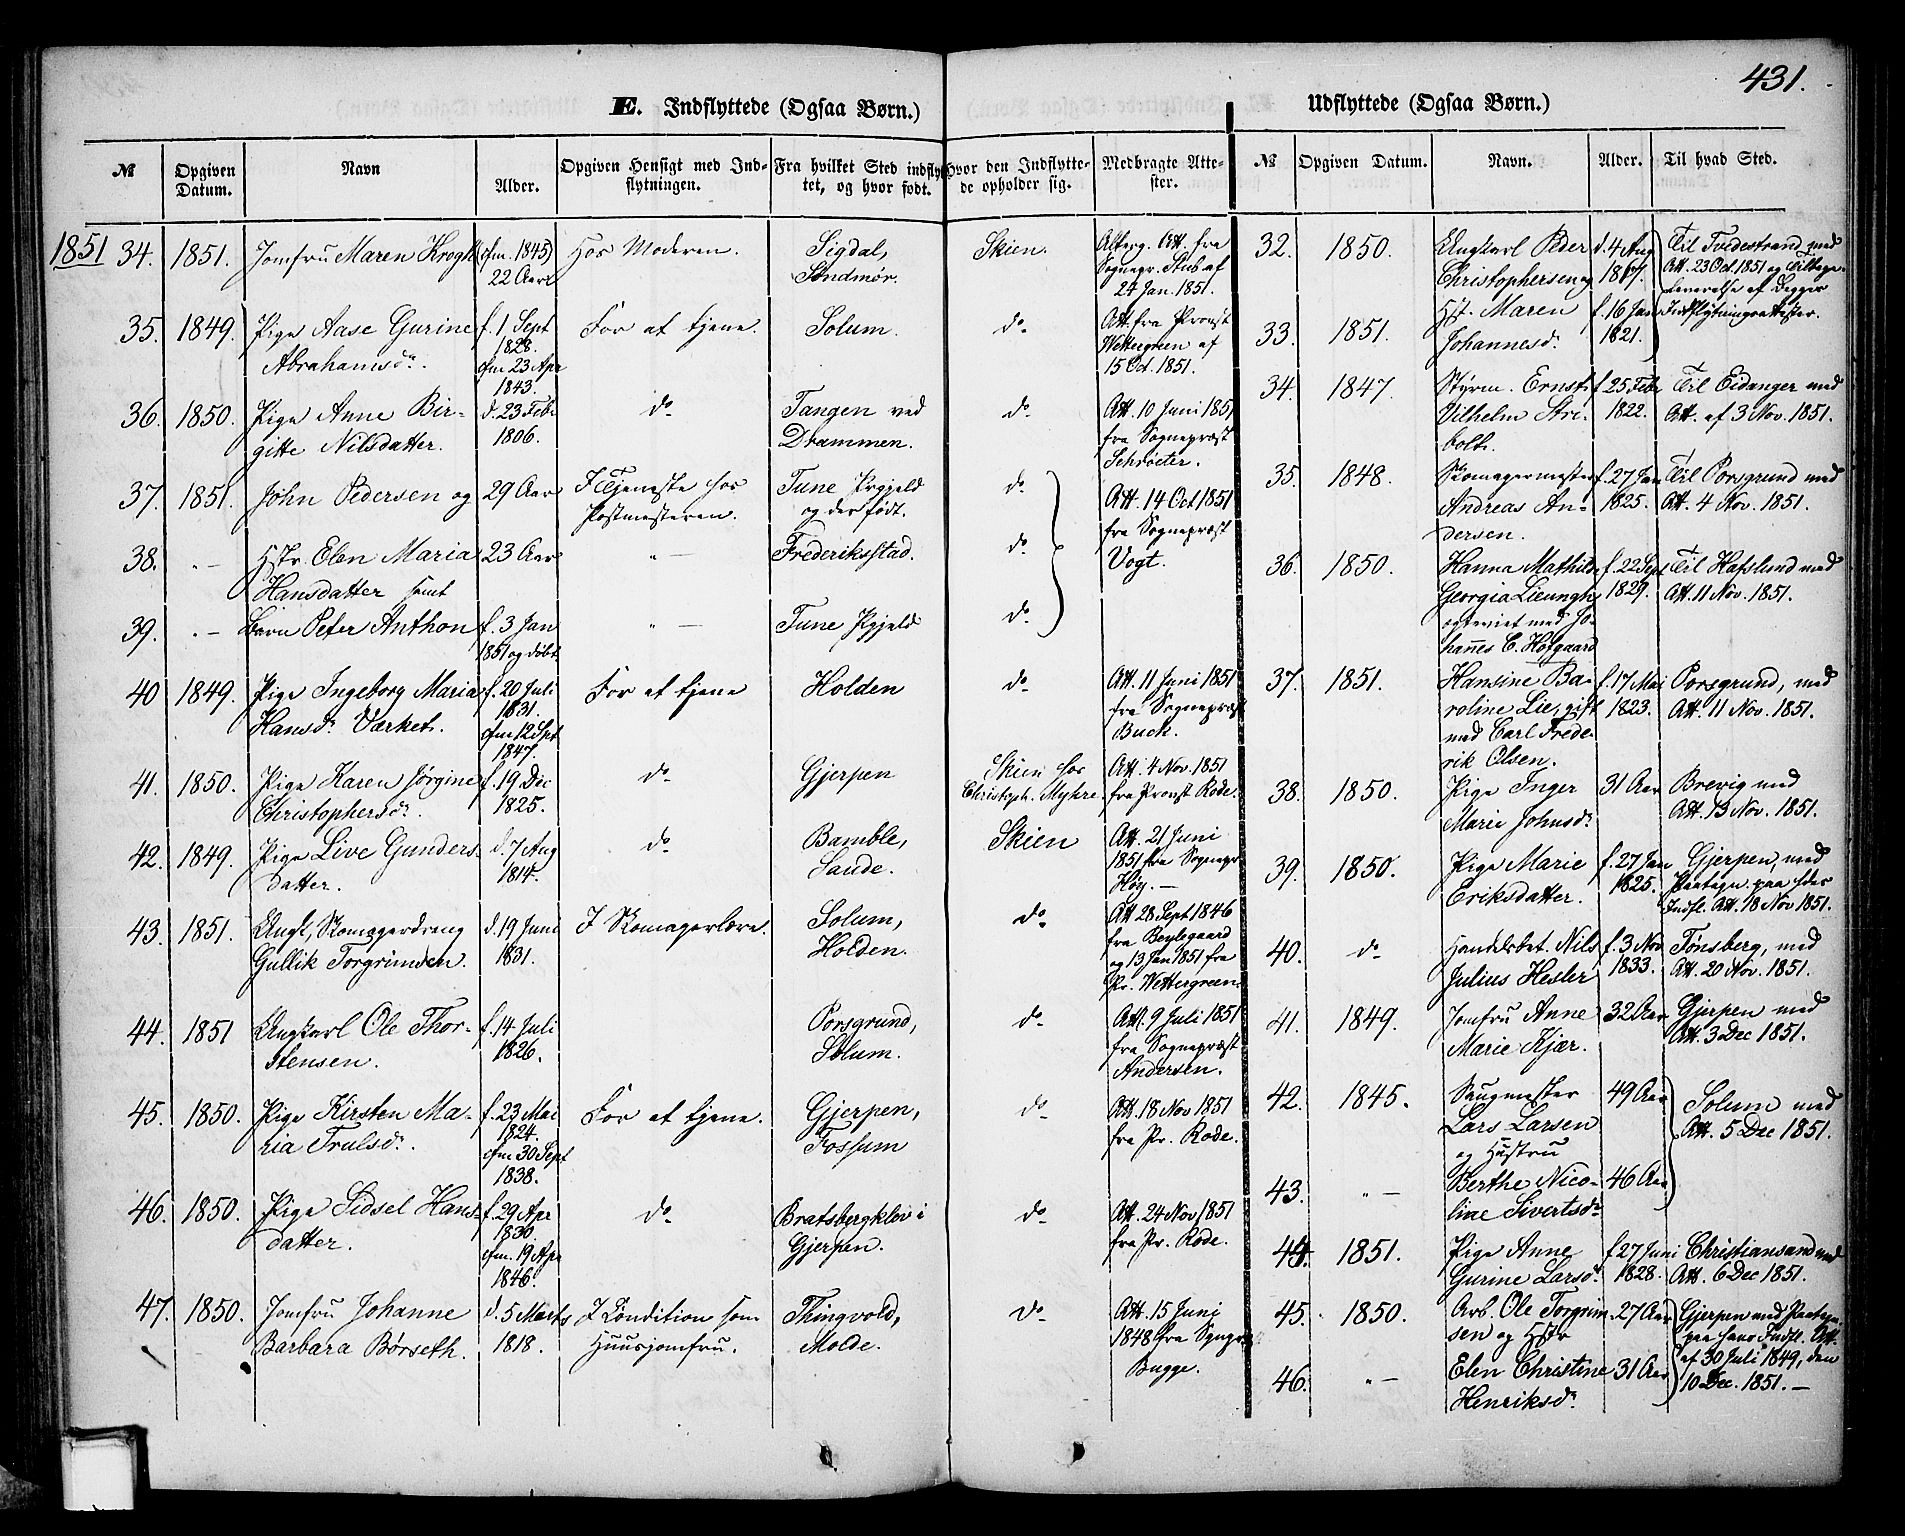 431.
E. Indflyttede (Ogsaa Børn.)
Udflyttede (Ogsaa Børn.)
№
Opgiven Datum.
Navn
Alder.
Opgiven Hensigt med Ind-
flytningen.
Fra hvilket Sted indflyt-
tet, og hvor født.
Hvor den Indflytte-
de opholder sig.
Medbragte Atte-
ster.
№
Opgiven Datum.
Navn.
Alder.
Til hvad Sted.
1851
34. 1851. Jomfru Maren Krogh (cfm. 1845) Hos Moderen. Sigdal, Skien. Alberg. Att. fra
22 Aar Søndmør. Sognepr. Stub af
24 Jan. 1851.
35. 1849. Pige Aase Gurine f. 1 Sept For at tjene. Solum. do Att. fra Provst
Abrahamsdr. 1828. Wettergreen af
cfm 23 Apr 15 Oct. 1851.
1843.
36. 1850. Pige Anne Bir- d. 23 Febr do Tangen ved do Att. 10 Juni 1851
gitte Nilsdatter. 1806. Drammen. fra Sognepræst
Schrøeter.
37. 1851. John Pedersen og 29 Aar I Tjeneste hos Tune Prgjeld do Att. 14 Oct 1851
Postmesteren. og der født. fra Sognepræst
38. " — Hstr. Elen Maria 23 Aar " — Frederiksstad. do Vogt.
Hansdatter samt
39. " — Barn Peter Anthon f. 3 Jan " — Tune Pgjeld do
1851 og døbt
40 1849. Pige Ingeborg Maria f. 20 Juli For at tjene Holden do Att. 11 Juni 1851
Hansdr. Værket. 1831. fra Sognepræst
cfm 12 Spt Buch.
1847.
41. 1850. Pige Karen Jørgine f. 19 Dec do Gjerpen Skien hos Att. 4 Nov. 1851
Christophersdr. 1825. Christoph. Myhre. fra Provst Rode.
42. 1849. Pige Live Gunders- d. 7 Aug do Bamble, Skien Att. 21 Juni
datter. 1814. Saude. 1851 fra Sognepr
Høy. —
43. 1851. Ungk, Skomagerdreng d. 19 Juni I Skomagerlære. Solum, do Att 28 Sept 1846
Gullik Torgrimsen. 1831. Holden. fra Beylegaard
og 13 Jan 1851 fra
Pr. Wettergreen.
44. 1851 Ungkarl Ole Thor- f. 14 Juli Porsgrund, do Att. 9 Juli 1851
stensen. 1826. Solum. fra Sognepræst
Andersen.
45. 1850. Pige Kirsten Ma- f. 23 Mai For at tjene. Gjerpen, do Att. 18 Nov 1851
ria Trulsdr. 1824. Fossum fra Pr. Rode.
cfm 30 Sept
1838.
46. 1850. Pige Sidsel Hans- f. 29 Apr do Bratsbergklev i do Att. 24 Nov 1851
datter. 1830. Gjerpen. fra Pr. Rode.
cfm. 19 Apr
1846.
47. 1850. Jomfru Johanne d. 5 Marts I Condition som Thingvold, do Att. 15 Juni
Barbara Børseth. 1818. Huusjomfru. Molde. 1848 fra Sgnepr
Bugge.
32. 1850. Ungkarl Peder d. 4 Aug Til Tvedestrand med
Christophersen og 1817. Att. 23 Oct. 1851 og Tilbage-
leverelse af Begges
33. 1851. Hst. Maren f. 16 Jan Indflytningsattester.
Johannesdr. 1821.
34. 1847. Styrm. Ernst f. 25 Febr Til Eidanger med
Vilhelm Stri- 1822. Att. af 3 Nov. 1851.
bolt.
35. 1848. Skomagermester f. 27 Jan Til Porsgrund med
Andreas An- 1825. Att. 4 Nov. 1851.
dersen.
36. 1850. Hanna Mathilde f. 22 Sept Til Hafslund med
Georgia Lieungh 1829. Att. 11 Nov. 1851.
egteviet med Jo-
hannes C. Hofgaard
37. 1851. Hansine Ba- f. 17 Mai Porsgrund, med
roline Lie, gift 1823. Att. 11 Nov. 1851.
med Carl Frede-
rik Olsen.
38. 1850. Pige Inger 31 Aar Brevig med
Marie Johnsdr. Att. 13 Nov. 1851.
39. 1850. Pige Marie f. 27 Jan Gjerpen, med
Eriksdatter. 1825. Paategn. paa hdes
Indfl. Att. 18 Nov 1851.
40. do Handelsbet. Nils f. 3 Nov Tønsberg, med
Julius Hesler 1833. Att. 20 Nov. 1851.
41. 1849. Jomfru Anne 32 Aar Gjerpen med
Marie Kjær. Att. 3 Dec 1851.
42. 1845. Saugmester 49 Aar Solum med
Lars Larsen Att. 5 Dec 1851.
og Hustru
43. " — Berthe Nico- 46 Aar
line Sivertsdr
44. 1851. Pige Anne f 27 Juni Christiansand med
Gurine Larsdr. 1828. Att. 6 Dec 1851.
45. 1850. Arb. Ole Torgrim- 27 Aar Gjerpen med Paategn.
sen og Hstr paa hans Indfl. Att.
af 30 Juli 1849, den
46. " — Elen Christine 31 Aar 10 Dec. 1851. —
Henriksdr.